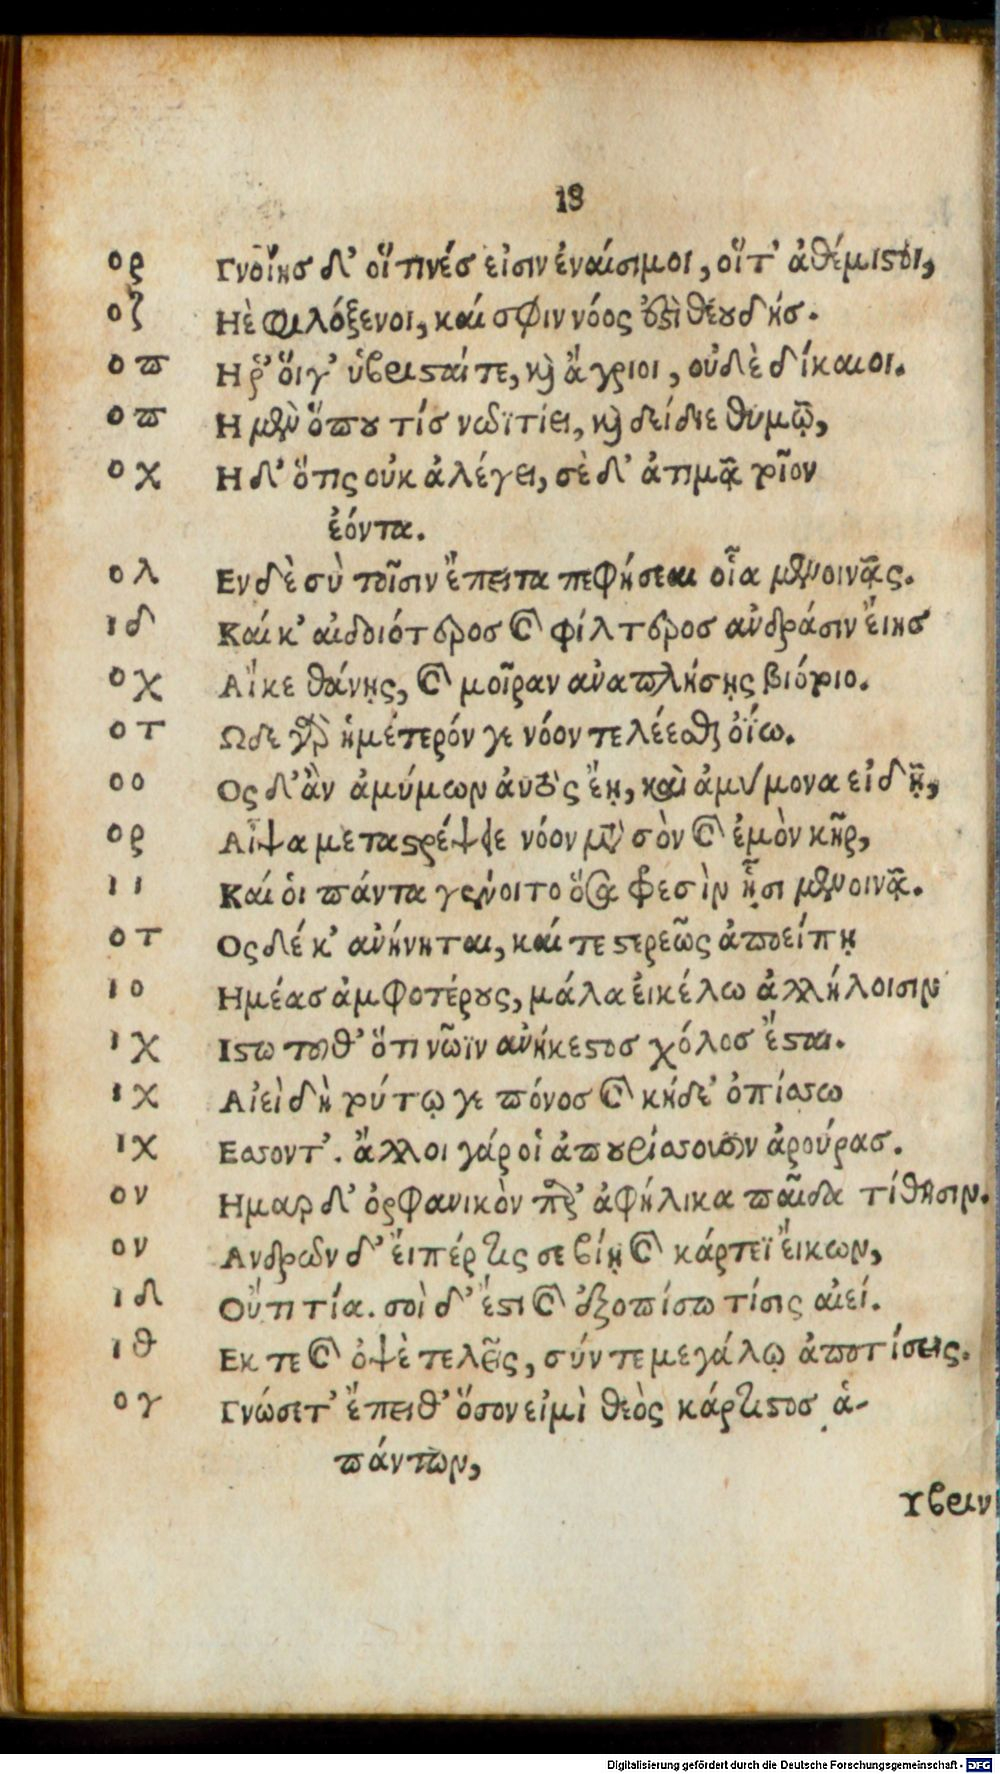 18
ος Γνοίης δ' οἵ τινές εἰσιν ἐναίσιμοι, οἵτ' ἀθέμιστοι,
οζ Ηὲ φιλόξενοι, καί σφιν νόος ἐστὶ θεουδής.
οπ Η ῥ' ὅιγ' ὑβρισταί τε, καὶ ἄγριοι, οὐδὲ δίκαιοι.
οπ Η μὲν ὅπου τίς νωϊ τίει, καὶ δείδιε θυμῷ,
οχ Η δ' ὅτις οὐκ ἀλέγει, σὲ δ' ἀτιμᾷ τοῖον
ἐόντα.
ολ Εν δὲ σὺ τοῖσιν ἔπειτα πεφήσεαι οἷα μενοινᾷς.
ιδ Καί κ' αἰδοιότερος καὶ φίλτερος ἀνδράσιν ἔιης
οχ Αἴκε θάνῃς, καὶ μοῖραν ἀναπλήσῃς βιότοιο.
οτ Ωδε γὰρ ἡμέτερόν γε νόον τελέεσθαι ὀΐω.
οο Ος δ' ἂν ἀμύμων ἀυτὸς ἔῃ, καὶ ἀμύμονα εἰδῇ,
ορ Αἶψα μεταστρέψειε νόον μετὰ σὸν καὶ ἐμὸν κῆρ,
ιι Καί οἱ πάντα γένοιτο ὅσα φρεσὶν ᾗσι μενοινᾷ.
οτ Ος δέ κ' ἀνήνηται, καί τε στερεῶς ἀποείπῃ
ιο Ημέας ἀμφοτέρους, μάλα ἐικέλω ἀλλήλοισιν
ιχ Ιστω τοῦθ' ὅτι νῶϊν ἀνήκεστος χόλος ἔσται.
ιχ Αἰεὶ δὴ τύτῳ γε πόνος καὶ κήδε' ὀπίσσω
ιχ Εσσοντ'. ἄλλοι γάρ οἱ ἀπουρίσσουσιν ἀρούρας.
ον Ημαρ δ' ὀρφανικὸν ἀφήλικα παῖδα τίθησιν.
ον Ανδρων δ' ἔιπέρ τις σε βίῃ καὶ κάρτεϊ ἔικων,
ιδ Οὔτι τία. σοὶ δ' ἔστι καὶ ἐξοπίσω τίσις αἰεί.
ιθ Εκ τε καὶ ὀψὲ τελεῖς, σύν τε μεγάλῳ ἀποτίσεις.
ογ Γνώσετ' ἔπειθ' ὅσον εἰμὶ θεὸς κάρτιστος ἁ-
πάντων,
Υβριν
Digitalisierung gefördert durch die Deutsche Forschungsgemeinschaft - DFG